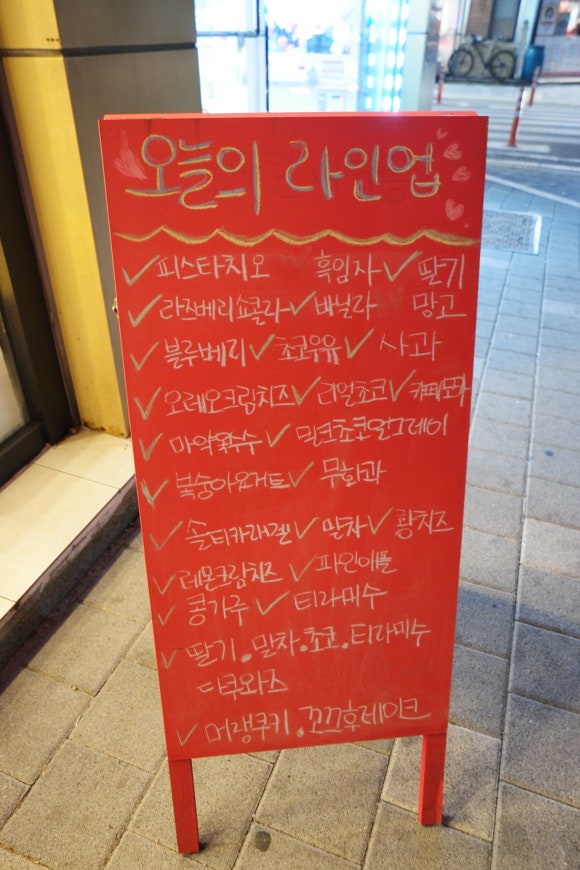 오늘의 라인업
✓피스타치오 흑임자 ✓딸기
✓라즈베리쇼콜라 ✓바닐라 망고
✓블루베리 ✓초코우유 ✓사과
✓오레오크림치즈 ✓리얼초코 ✓카페모카
✓마약옥수수 ✓밀크초코얼그레이
✓복숭아요거트 ✓무화과
✓솔티카라멜 ✓말차 ✓황치즈
✓레몬크림치즈 ✓파인애플
✓콩가루 ✓티라미수
✓딸기.말차.초코.티라미수
다쿠와즈
✓머랭쿠키.꼬끄후레이크